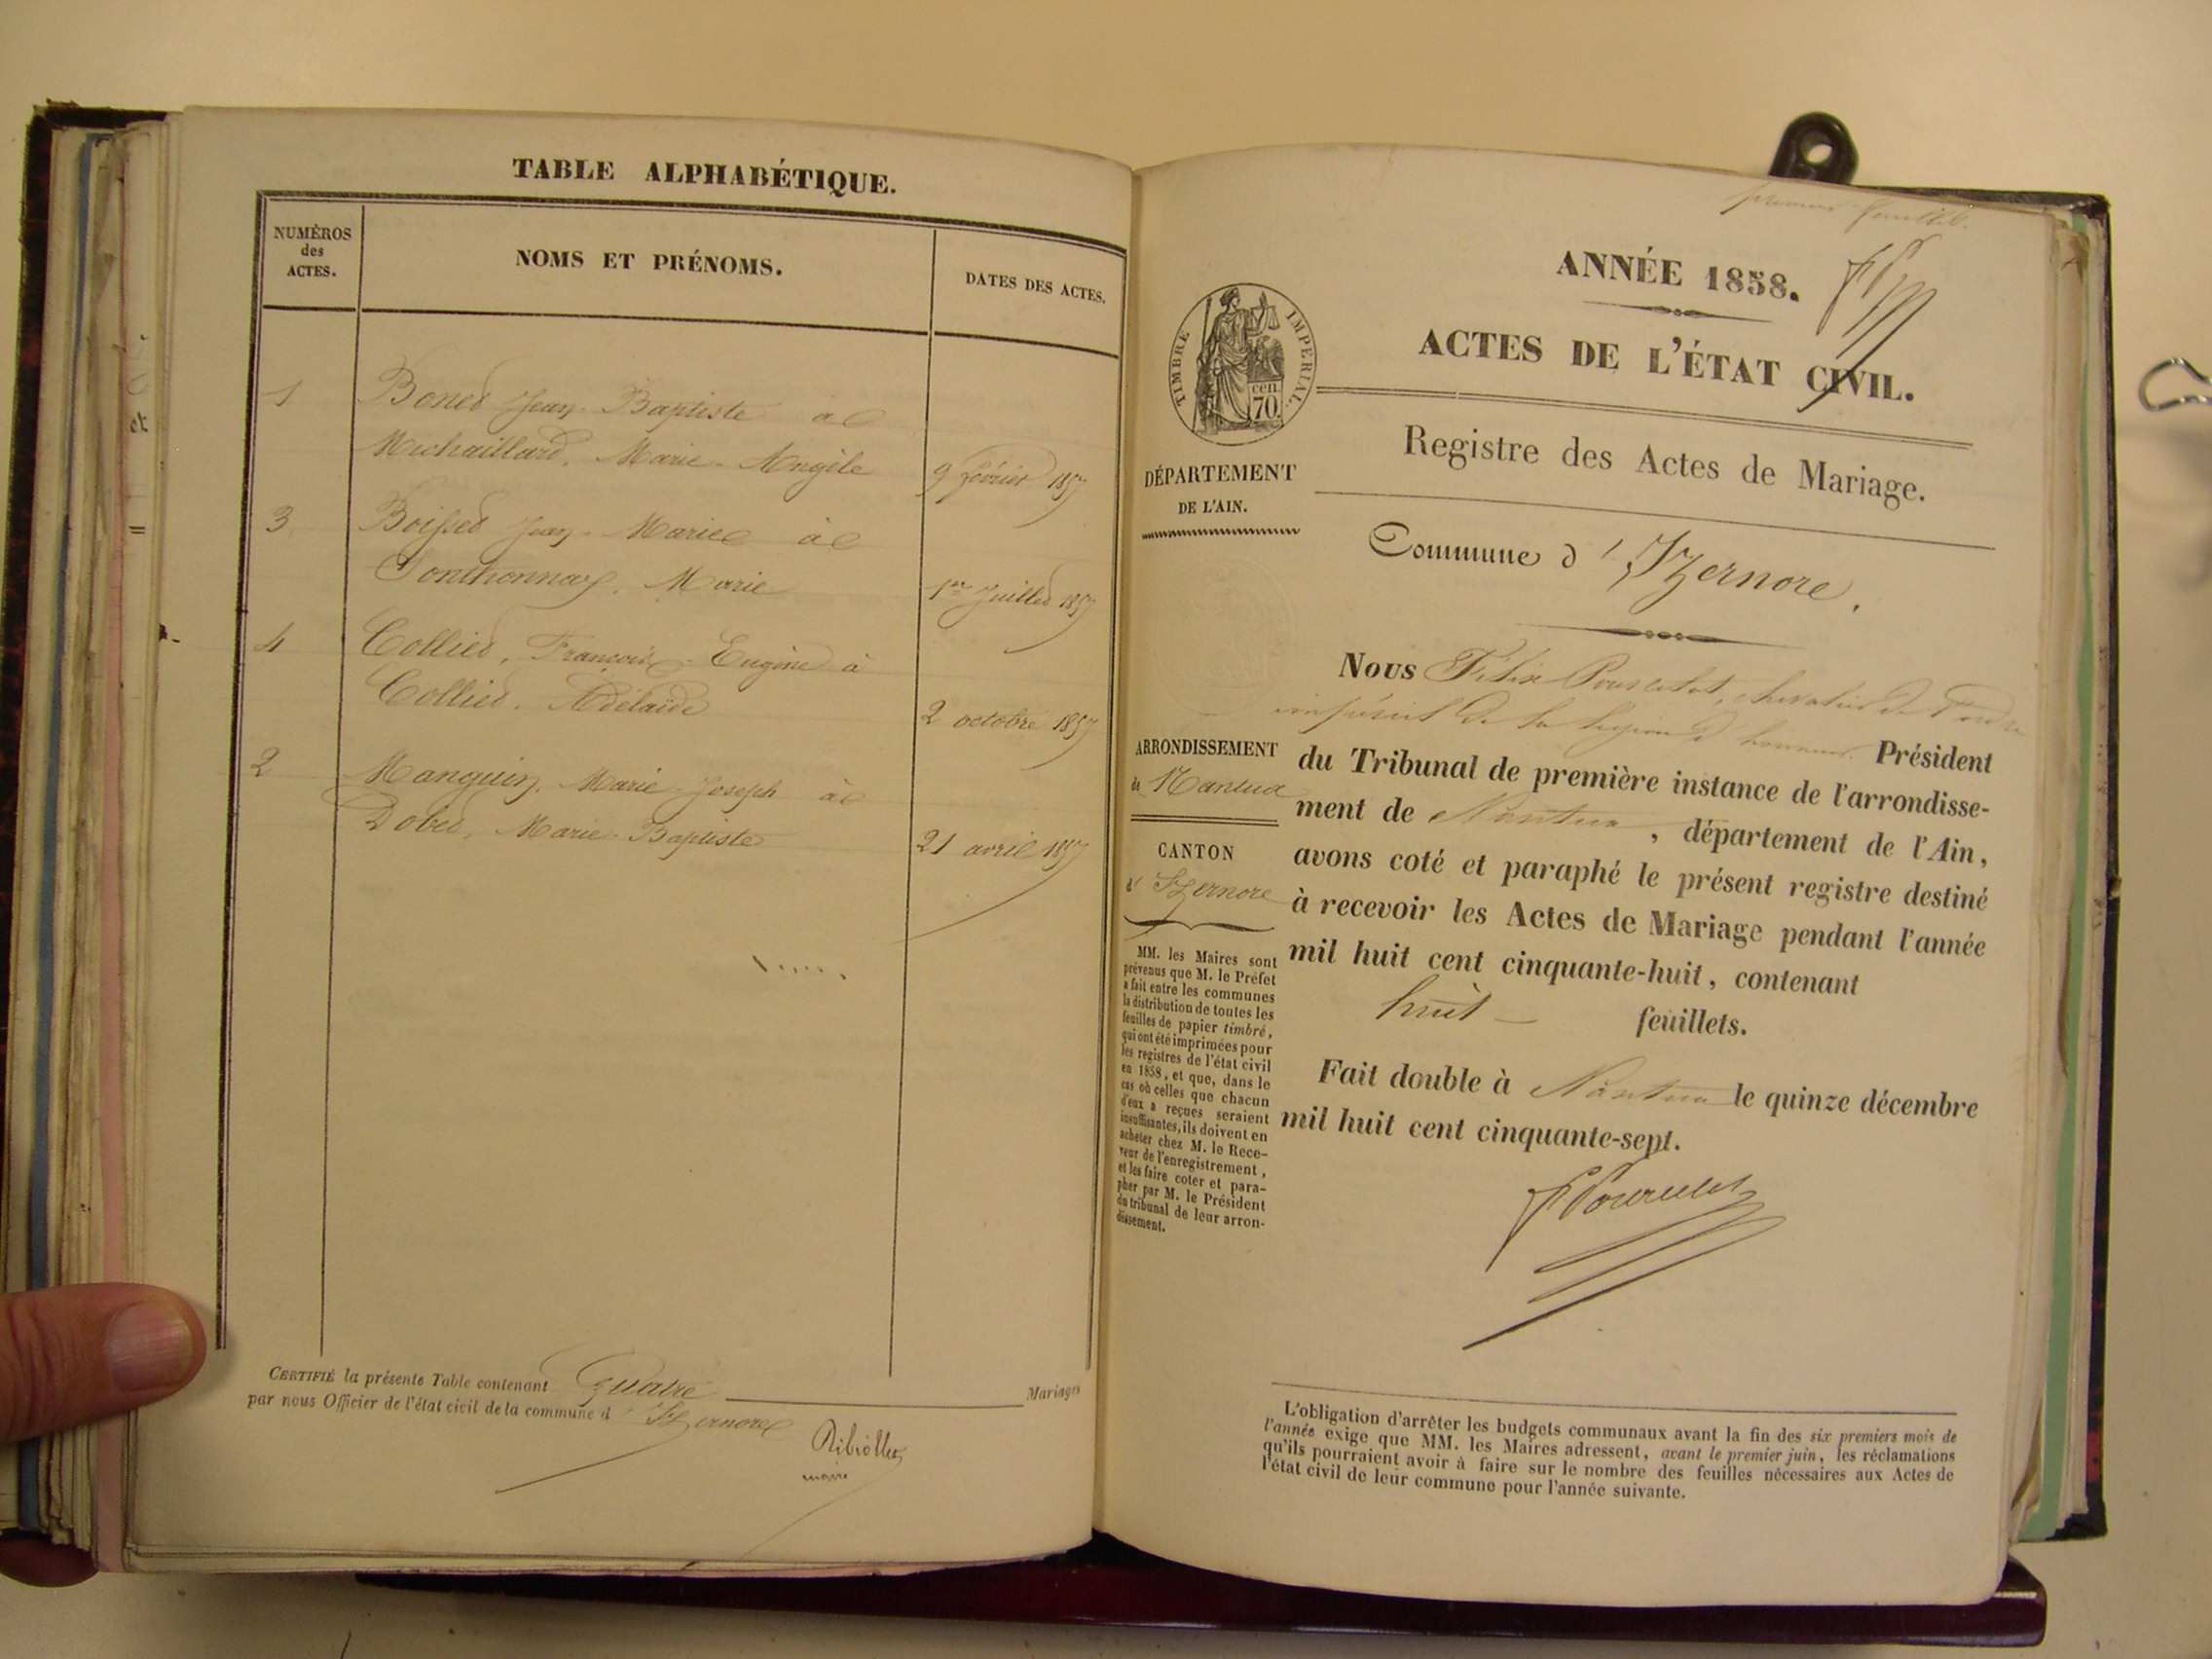 TABLE ALPHABÉTIQUE.
NUMÉROS
des
ACTES.
NOMS ET PRÉNOMS.
DATES DES ACTES.
1 Boned Jean-Baptiste à
Michaillard, Marie-Angèle 9 février 1857
3 Boissed Jean-Marie à
Sonthonnax, Marie 1er Juillet 1857
4 Collied, François-Eugène à
Collied, Adélaïde 2 octobre 1857
2 Manguin, Marie-Joseph à
Marie-Baptiste 21 avril 1857
CERTIFIÉ la présente Table contenant Quatre Mariages
par nous Officier de l'état civil de la commune d'Izernore
maire
premier feuillet.
ANNÉE 1858.
ACTES DE L'ÉTAT CIVIL.
TIMBRE IMPÉRIAL.
cen.
70.
Registre des Actes de Mariage.
DÉPARTEMENT
DE L'AIN.
Commune d'Izernore.
Nous Félix chevalier de l'ordre
impérial de la légion d'honneur Président
du Tribunal de première instance de l'arrondisse-
ment de Nantua, département de l'Ain,
avons coté et paraphé le présent registre destiné
à recevoir les Actes de Mariage pendant l'année
mil huit cent cinquante-huit, contenant
huit feuillets.
Fait double à Nantua le quinze décembre
mil huit cent cinquante-sept.
ARRONDISSEMENT
de Nantua
CANTON
d'Izernore
MM. les Maires sont
prévenus que M. le Préfet
a fait entre les communes
la distribution de toutes les
feuilles de papier timbré,
qui ont été imprimées pour
les registres de l'état civil
en 1858, et que, dans le
cas où celles que chacun
d'eux a reçues seraient
insuffisantes, ils doivent en
acheter chez M. le Rece-
veur de l'enregistrement,
et les faire coter et para-
pher par M. le Président
du tribunal de leur arron-
dissement.
L'obligation d'arrêter les budgets communaux avant la fin des six premiers mois de
l'année exige que MM. les Maires adressent, avant le premier juin, les réclamations
qu'ils pourraient avoir à faire sur le nombre des feuilles nécessaires aux Actes de
l'état civil de leur commune pour l'année suivante.